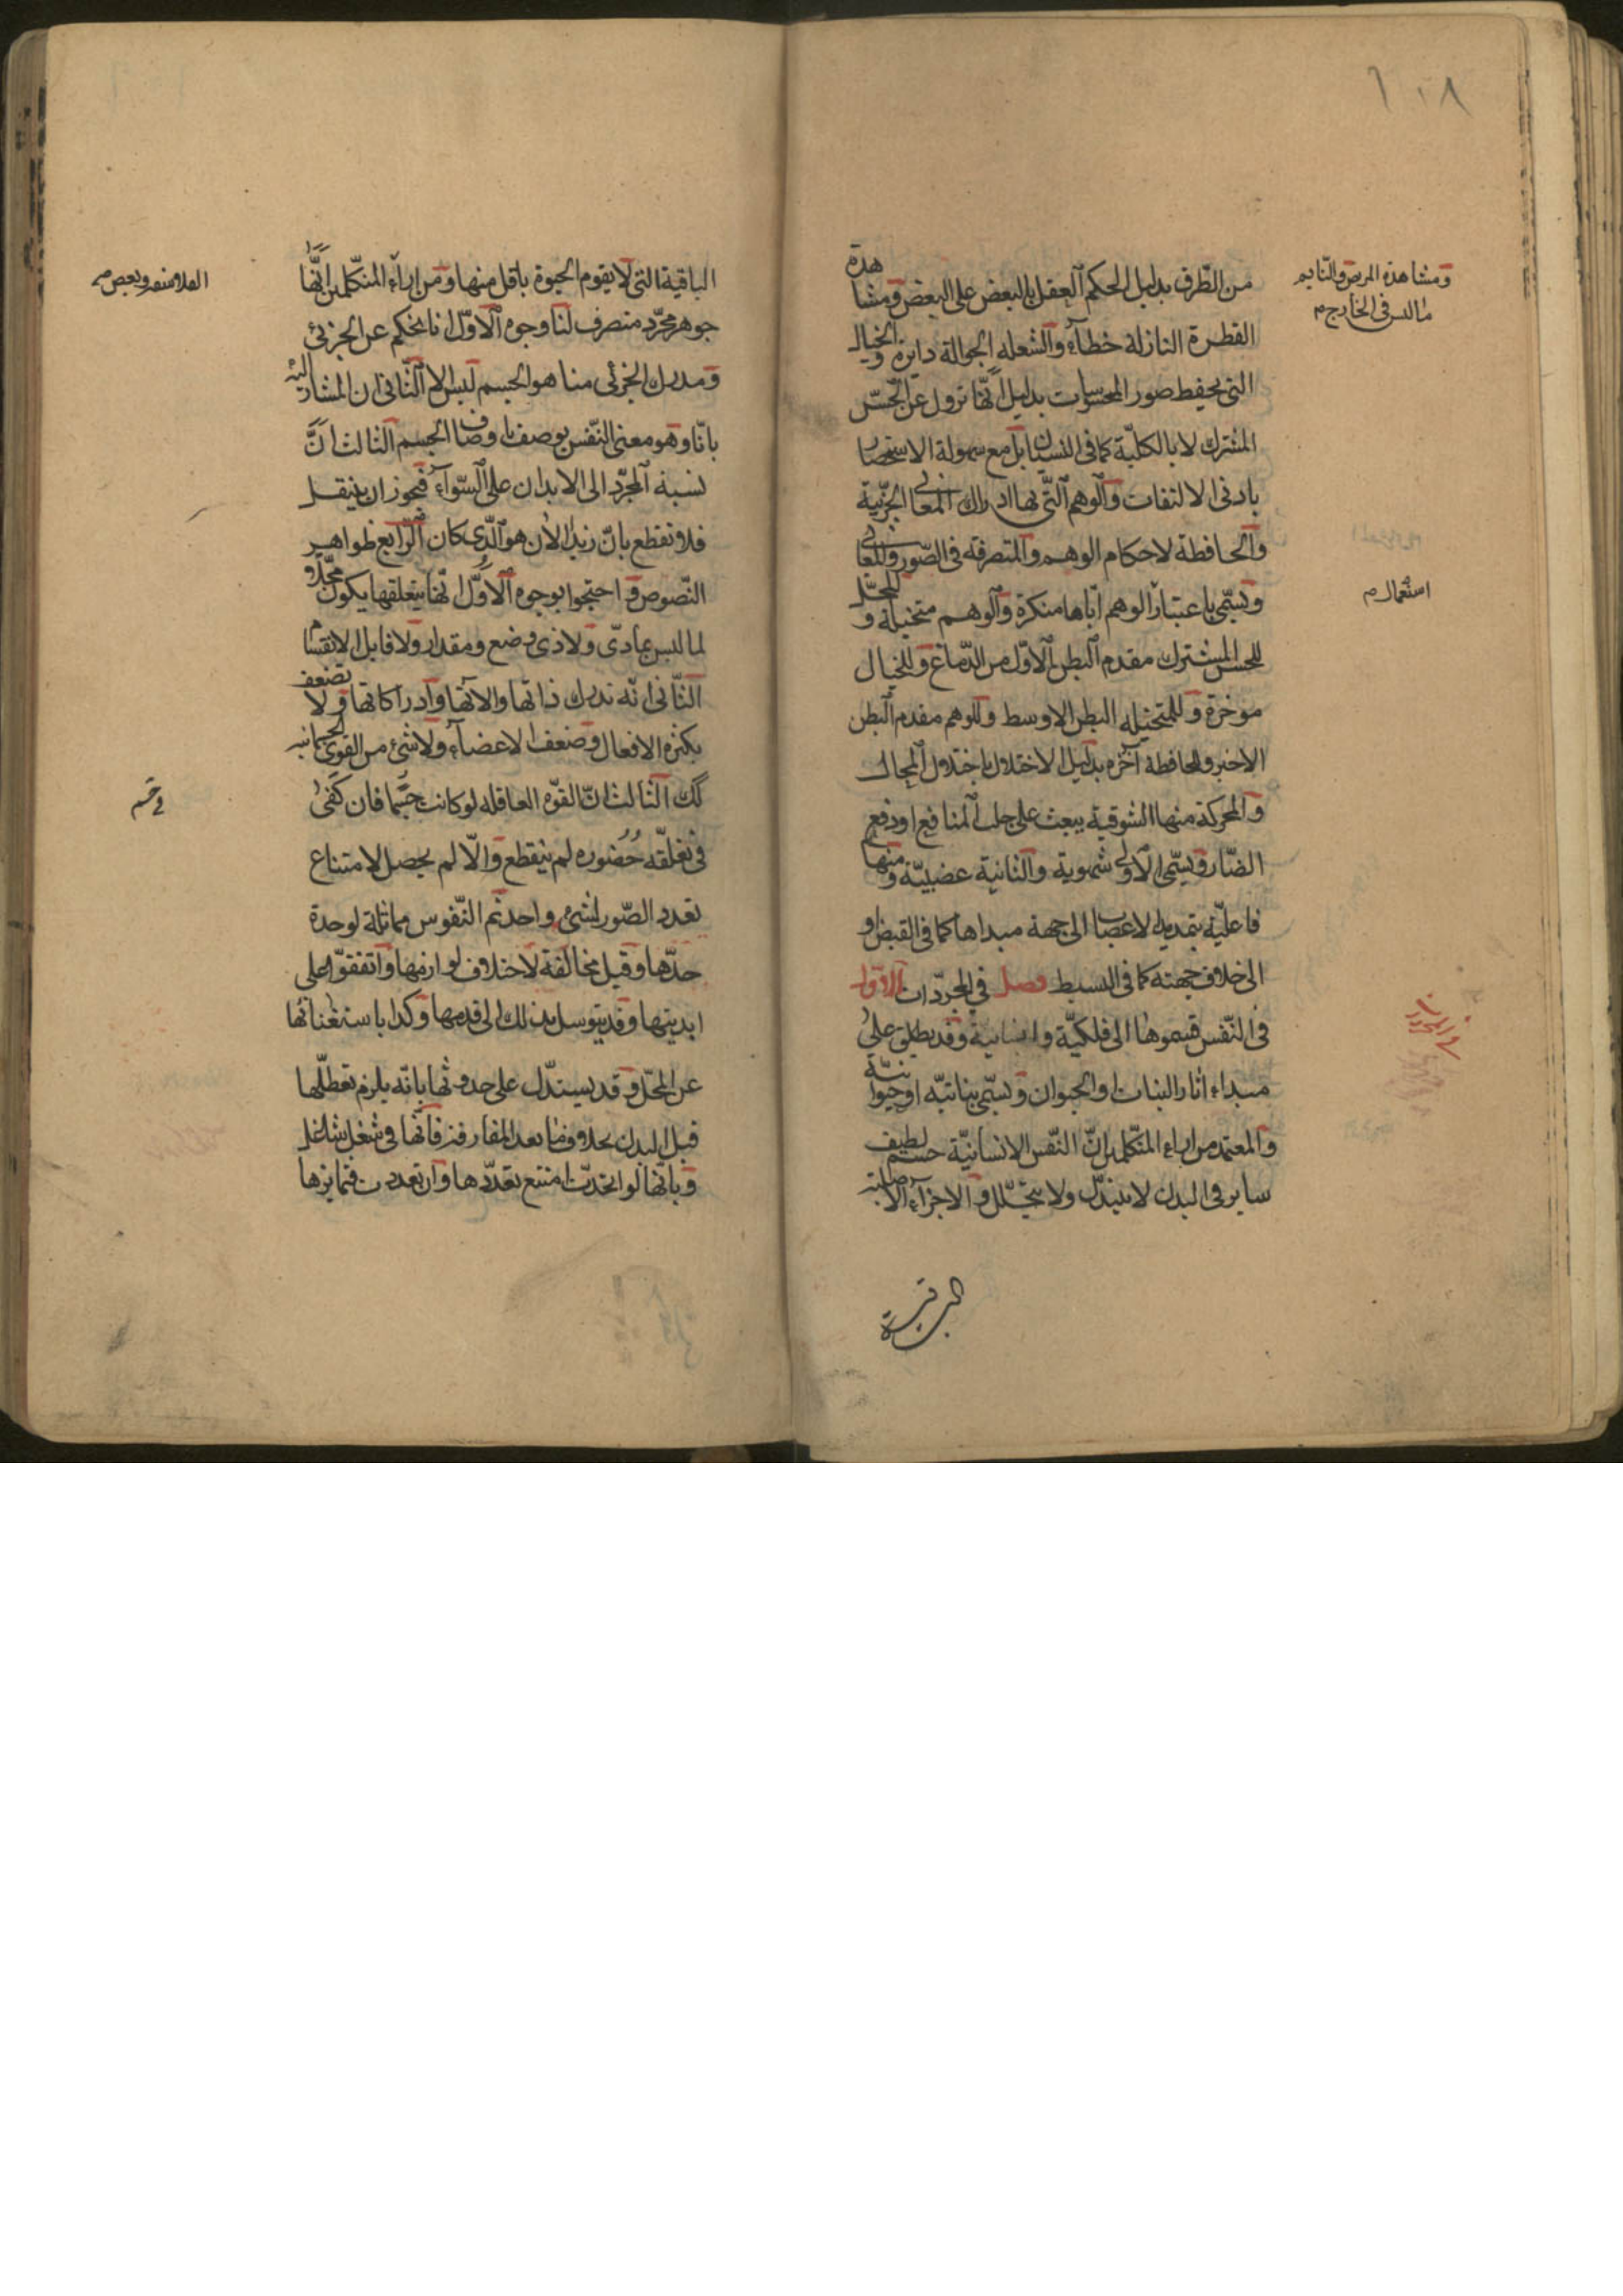 ١٠٨
من الطرق بدليل الحكم العقل بالبعض على البعض ومشاهدة
القطرة النازلة خطاء والشعله الجوالة دايرة والخيال
التى يحفظ صور المحسوسات بدليل انّها تزول عن الحسّ
المشترك لا بالكلّية كما فى النسيان بل مع سهولة الاستحضار
بادنى الالتفات والوهم التّى بها ادراك المعانى الجزئية
والحافظة لاحكام الوهم والمتصرفة فى الصّور والمعانى
وتسمّى باعتبار الوهم ايّاها منكرة والوهم متخيلة و للمحلّ
للحس المشترك مقدم البطن الاوّل من الدّماغ وللخيال
موخرة وللمتخيله البطن الاوسط وللوهم مقدم البطن
الاخير وللحافظة آخره بدليل الاختلال باختلال المحال
والمحركة منها الشوقية يبعث على جلب المنافع او دفع
الضّار ويسمّى الاولى شهوية والثانية غضبيّة ومنها
فاعليّة بتمديد الاعصاب الى جهة مبداها كما فى القبض او
الى خلاف جهته كما فى البسط فصل في المجرّدات الاوّل
فى النّفس قسموها الى فلكيّة وانسانية وقد يطلق على
مبداء اثار النبات والحيوان وتسمّى نباتيّه او حيوانيّة
والمعتمد من اراء المتكلّمين انّ النّفس الانسانيّة جسم لطيف
ساير فى البدن لا يتبدّل ولا يتحلّل والاجزاء الاصلية
الباقية
ومشاهدة المريض والنّايم
ما ليس فى الخارج م
استعمال م
الباقية التى لا يقوم الحيوة باقل منها ومن اراء المتكّلمين انّها
جوهر مجرّد متصرف لنا وجوه الاوّل انا نحكم عن الجزئى
ومدرك الجزئى منا هو الجسم ليس الا الثّانى ان المشار اليه
بانّا وهو معنى النّفس يوصف باوصاف الجسم الثالث انّ
نسبة المجرّد الى الابدان على السّواء فيجوز ان ينتقل
فلا نقطع بانّ زيدا الان هو الّذى كان الرّابع ظواهر
النّصوص واحتجّوا بوجوه الاوّل انّها يتعلقها يكون محلّا و
لما ليس بمادّى ولا ذى وضع ومقدار ولا قابل الانقسام
الثّانى انّه تدرك ذاتها والاتها وادراكاتها ولا تضعف
بكثرة الافعال وضعف الاعضاء ولا شئ من القوى الجسمانيه
كك الثالث انّ القوّه العاقله لو كانت جسما فان كفى
فى تعلقّه حُضُوره لم ينقطع والّا لم يحصل لامتناع
تعدد الصّور لشئ واحد ثم النّفوس مماثلة لوحدة
حدّها وقيل مخالفة لاختلاف لوازمها واتفقوّا على
ابديتها وقد يتوسل بذلك الى قدمها وكذا باستغنائها
عن المحلّ وقد يستدّل على حدوثها بانّه يلزم تعطّلها
قبل البدن بخلاف ما بعد المفارقة فانّها فى شغل شاغل
وبانّها لو اتحدت امتنع تعدّدها وان تعددت فتمايزها
الفلاسفه وبعض م